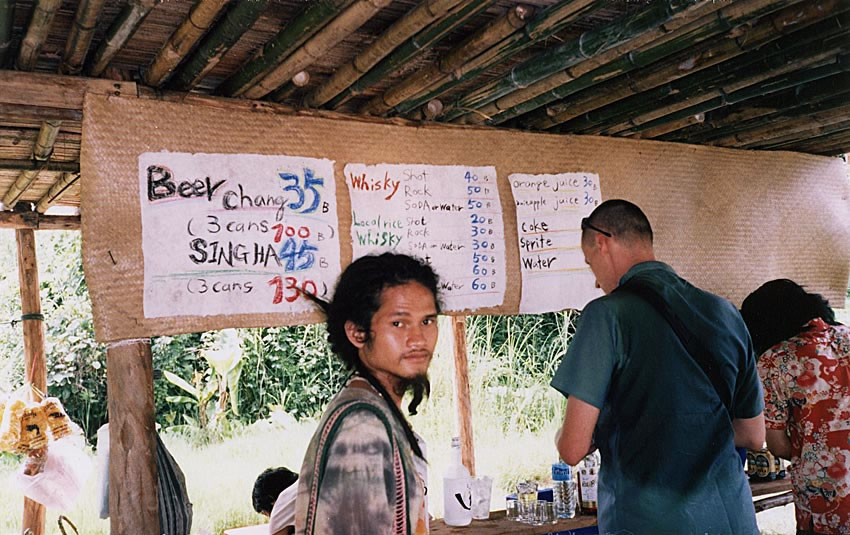 Beer chang 35 B
(3 cans 100 B)
SINGHA 45 B
(3 cans 130 )
Whisky Shot 40 B
Rock 50 B
SODA or Water 50 B
Local rice Shot 20 B
Whisky Rock 30 B
SODA or Water 30 B
50 B
60 B
Water 60 B
orange juice 30 B
juice 30 B
coke
Sprite
Water